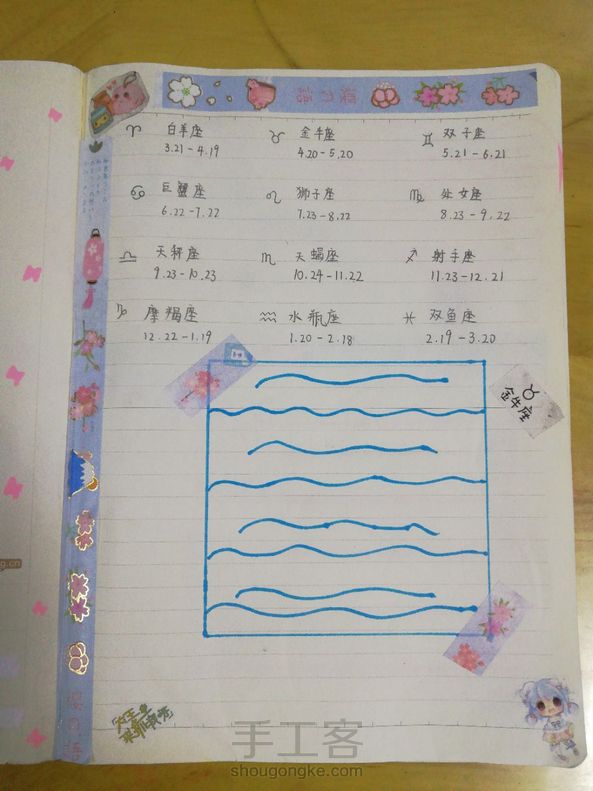 櫻の語
♈ 白羊座
3.21-4.19
♉ 金牛座
4.20-5.20
♊ 双子座
5.21-6.21
♋ 巨蟹座
6.22-7.22
♌ 狮子座
7.23-8.22
♍ 处女座
8.23-9.22
♎ 天秤座
9.23-10.23
♏ 天蝎座
10.24-11.22
♐ 射手座
11.23-12.21
♑ 摩羯座
12.22-1.19
♒ 水瓶座
1.20-2.18
♓ 双鱼座
2.19-3.20
♉
金牛座
g.cn
櫻の語
手工客
shougongke.com